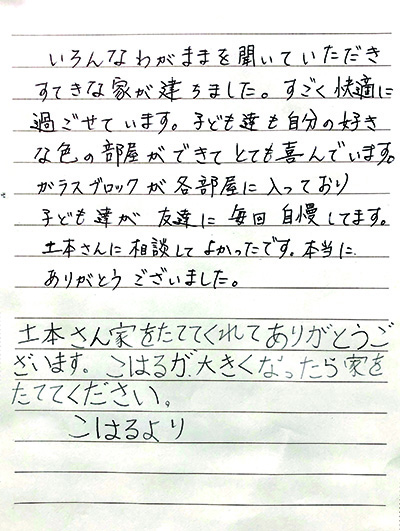 いろんなわがままを聞いていただき
すてきな家が建ちました。すごく快適に
過ごせています。子ども達も自分の好き
な色の部屋ができてとても喜んでいます。
ガラスブロックが各部屋に入っており
子ども達が友達に毎回自慢してます。
土本さんに相談してよかったです。本当に
ありがとうございました。
土本さん家をたててくれてありがとうご
ざいます。こはるが大きくなったら家を
たててください。
こはるより